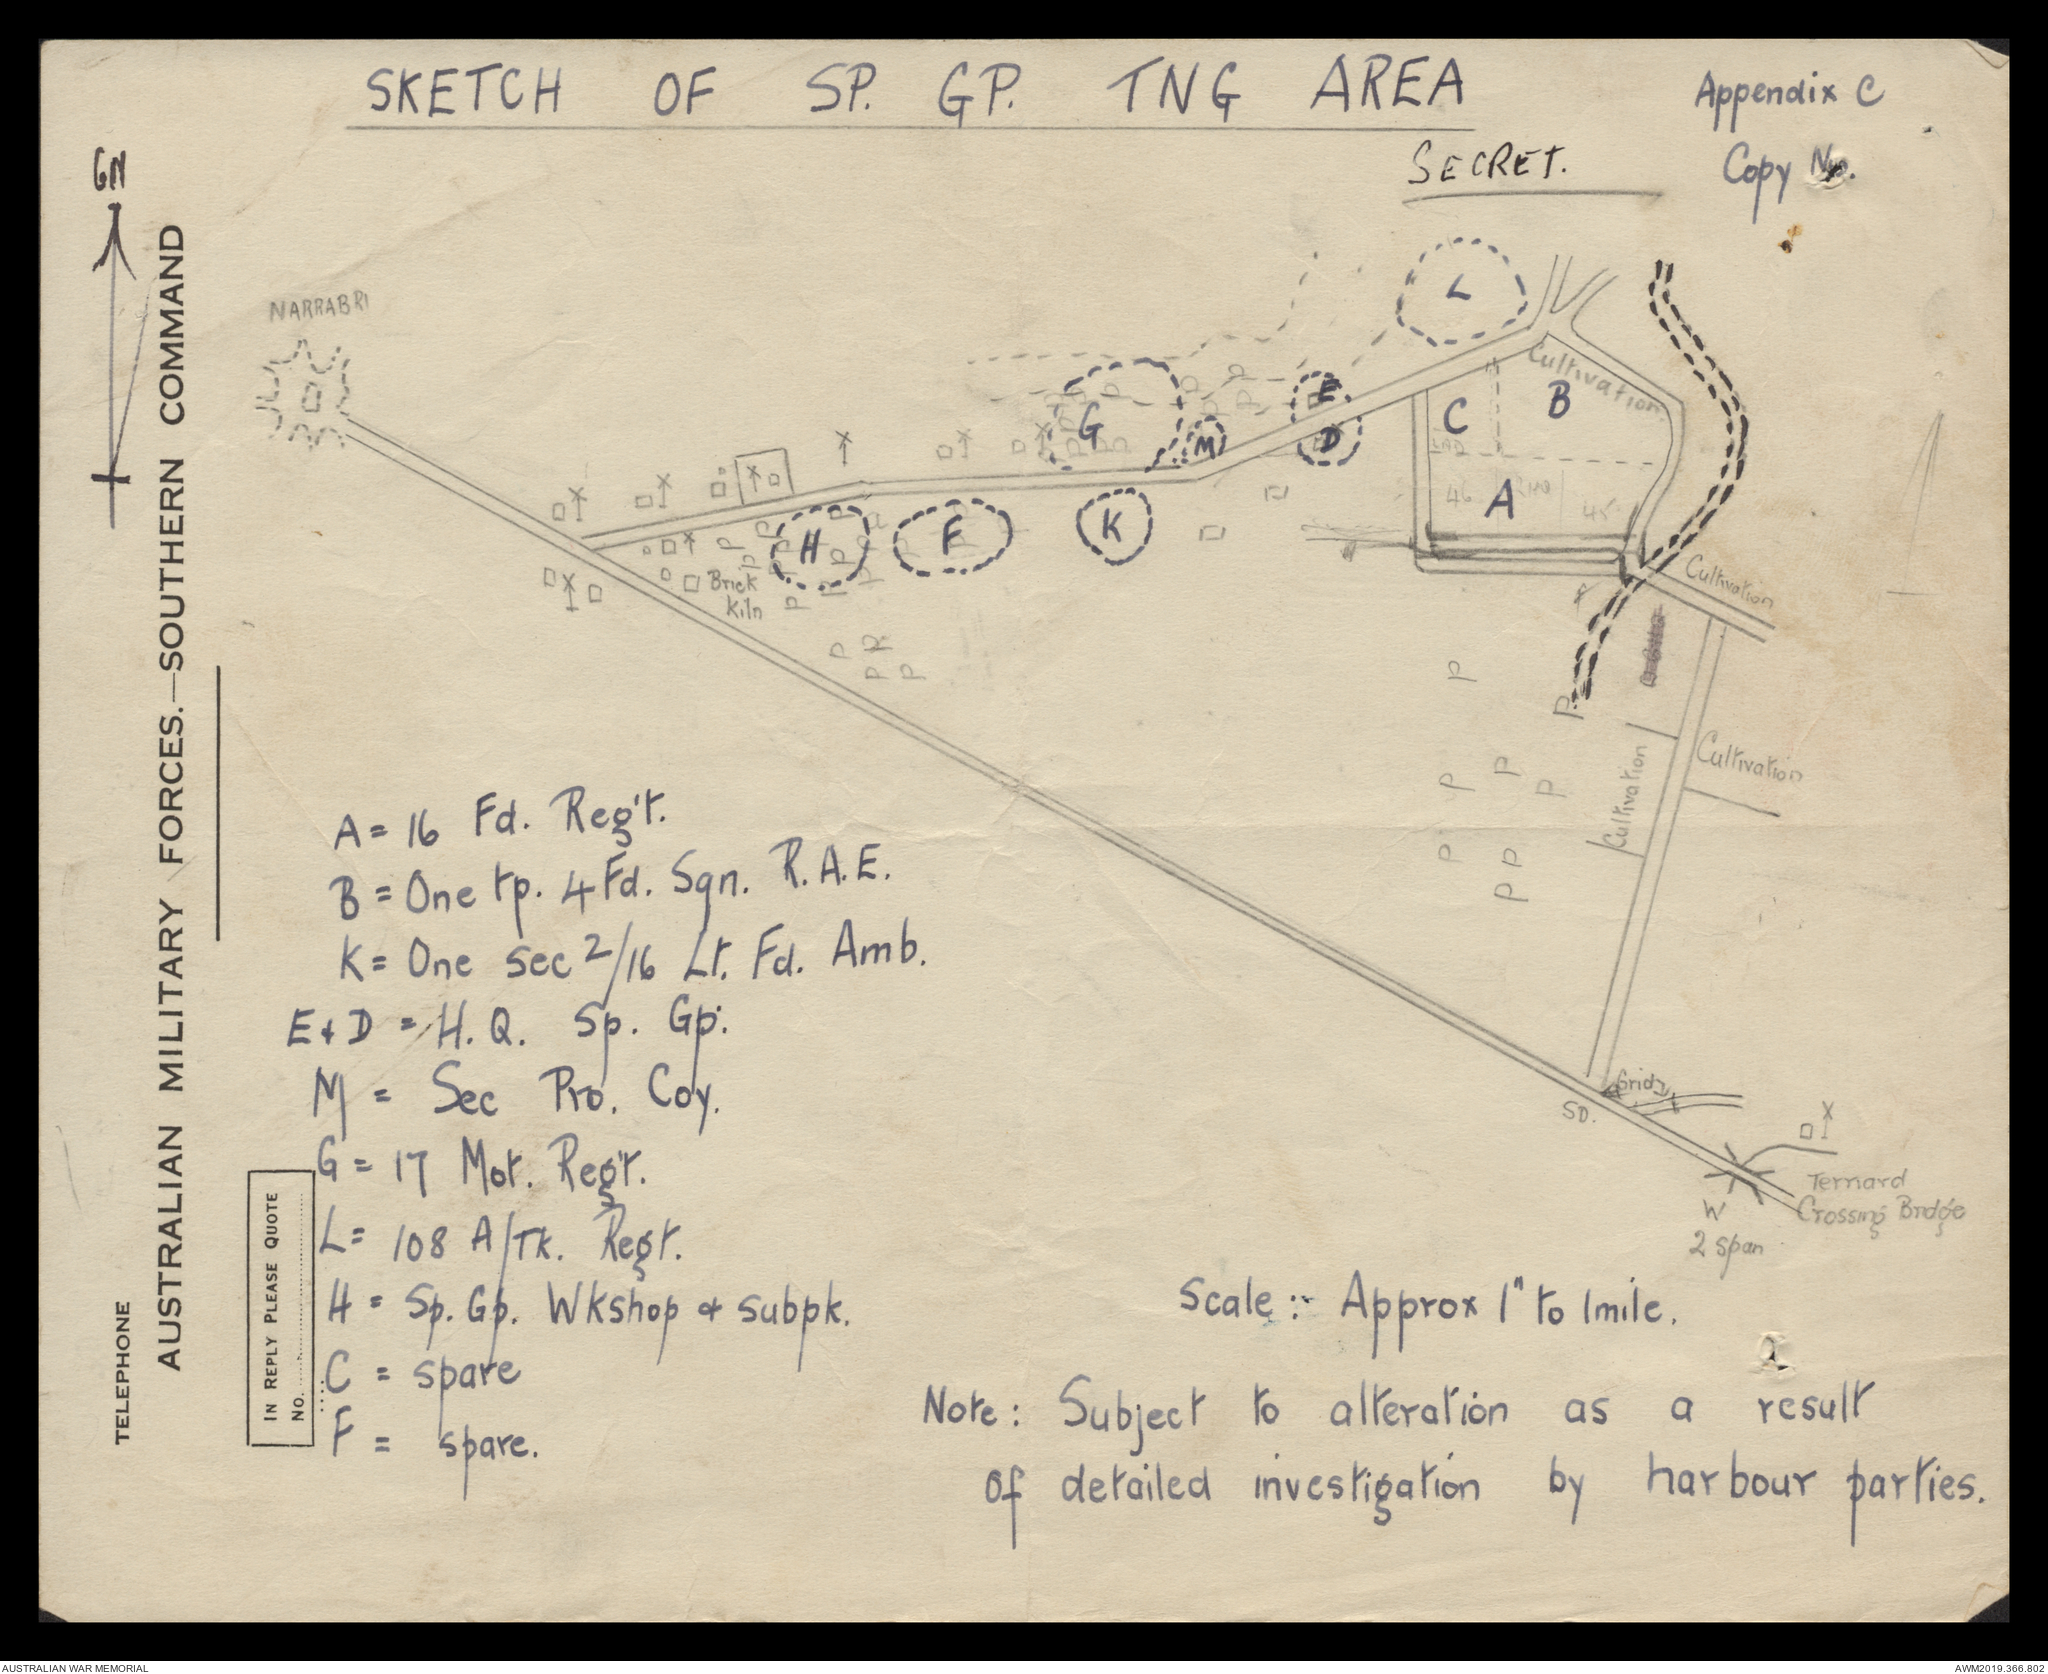 SKETCH OF SP. GP. TNG AREA
Appendix C
SECRET.
Copy No.
GN
NARRABRI
L
Cultivation
E
C
B
G
M
D
LAD
46
A
45
H
F
K
Brick
Kiln
Cultivation
Cultivation
Cultivation
SD.
Ternard
Crossing Bridge
W
2 span
A = 16 Fd. Reg't.
B = One tp. 4 Fd. Sqn. R.A.E.
K = One sec 2/16 Lt. Fd. Amb.
E + D = H.Q. Sp. Gp.
M = Sec Pro. Coy.
G = 17 Mot. Reg't.
L = 108 A/Tk. Regt.
H = Sp. Gp. Wkshop + subpk.
C = spare
F = spare.
Scale :- Approx 1" to 1 mile.
Note: Subject to alteration as a result
of detailed investigation by harbour parties.
AUSTRALIAN MILITARY FORCES.—SOUTHERN COMMAND
TELEPHONE
IN REPLY PLEASE QUOTE
No.
AUSTRALIAN WAR MEMORIAL
AWM2019.366.802